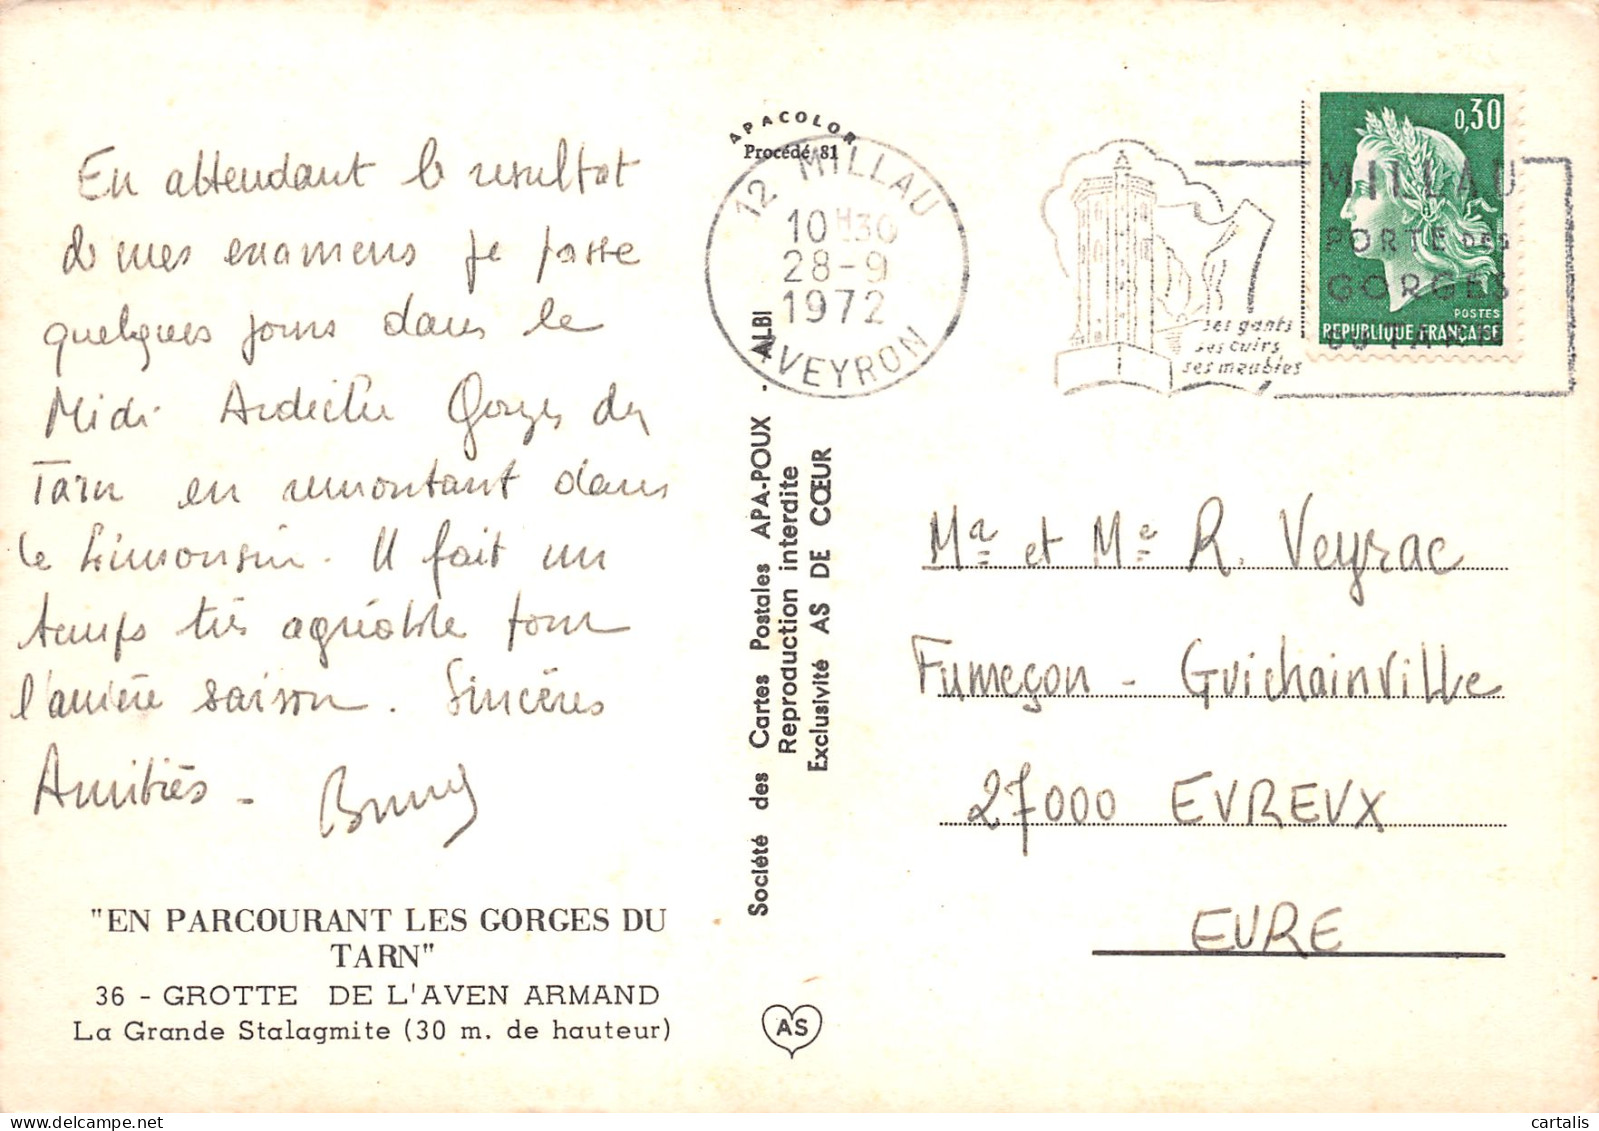 En attendant le resultat
de mes examens je passe
quelques jours dans le
Midi Ardèche Gorges du
Tarn en remontant dans
le Limousin. Il fait un
temps très agréable pour
l'arrière saison. Sincères
Amitiés -
"EN PARCOURANT LES GORGES DU
TARN"
36 - GROTTE DE L'AVEN ARMAND
La Grande Stalagmite (30 m. de hauteur)
APACOLOR
Procédé 81
12 MILLAU
10H30
28-9
1972
AVEYRON
Société des Cartes Postales APA-POUX - ALBI
Reproduction interdite
Exclusivité AS DE CŒUR
AS
ses gants
ses cuirs
ses meubles
MILLAU
PORTE DES
GORGES
DU TARN
0,30
POSTES
REPUBLIQUE FRANÇAISE
Mr et Me R. Veyrac
Fumeçon - Guichainville
27000 EVREUX
EURE
delcampe.net
cartalis